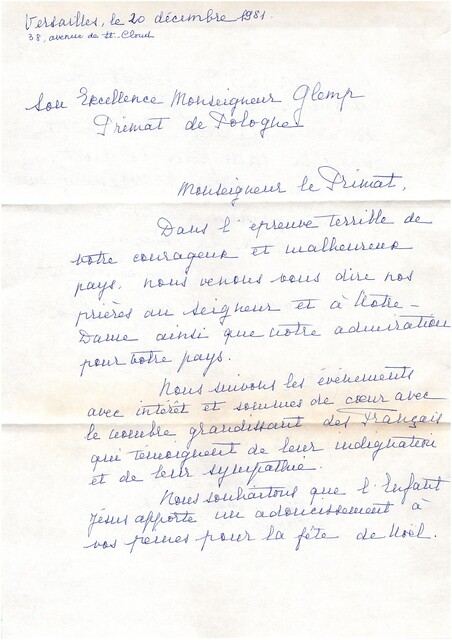 Versailles, le 20 décembre 1981.
38, avenue de St-Cloud
Son Excellence Monseigneur Glemp
Primat de Pologne
Monseigneur le Primat,
Dans l'épreuve terrible de
votre courageux et malheureux
pays, nous venons vous dire nos
prières au Seigneur et à Notre-
Dame ainsi que notre admiration
pour votre pays.
Nous suivons les événements
avec intérêt et sommes de cœur avec
le nombre grandissant des Français
qui témoignent de leur indignation
et de leur sympathie.
Nous souhaitons que l'Enfant
Jésus apporte un adoucissement à
vos peines pour la fête de Noël.